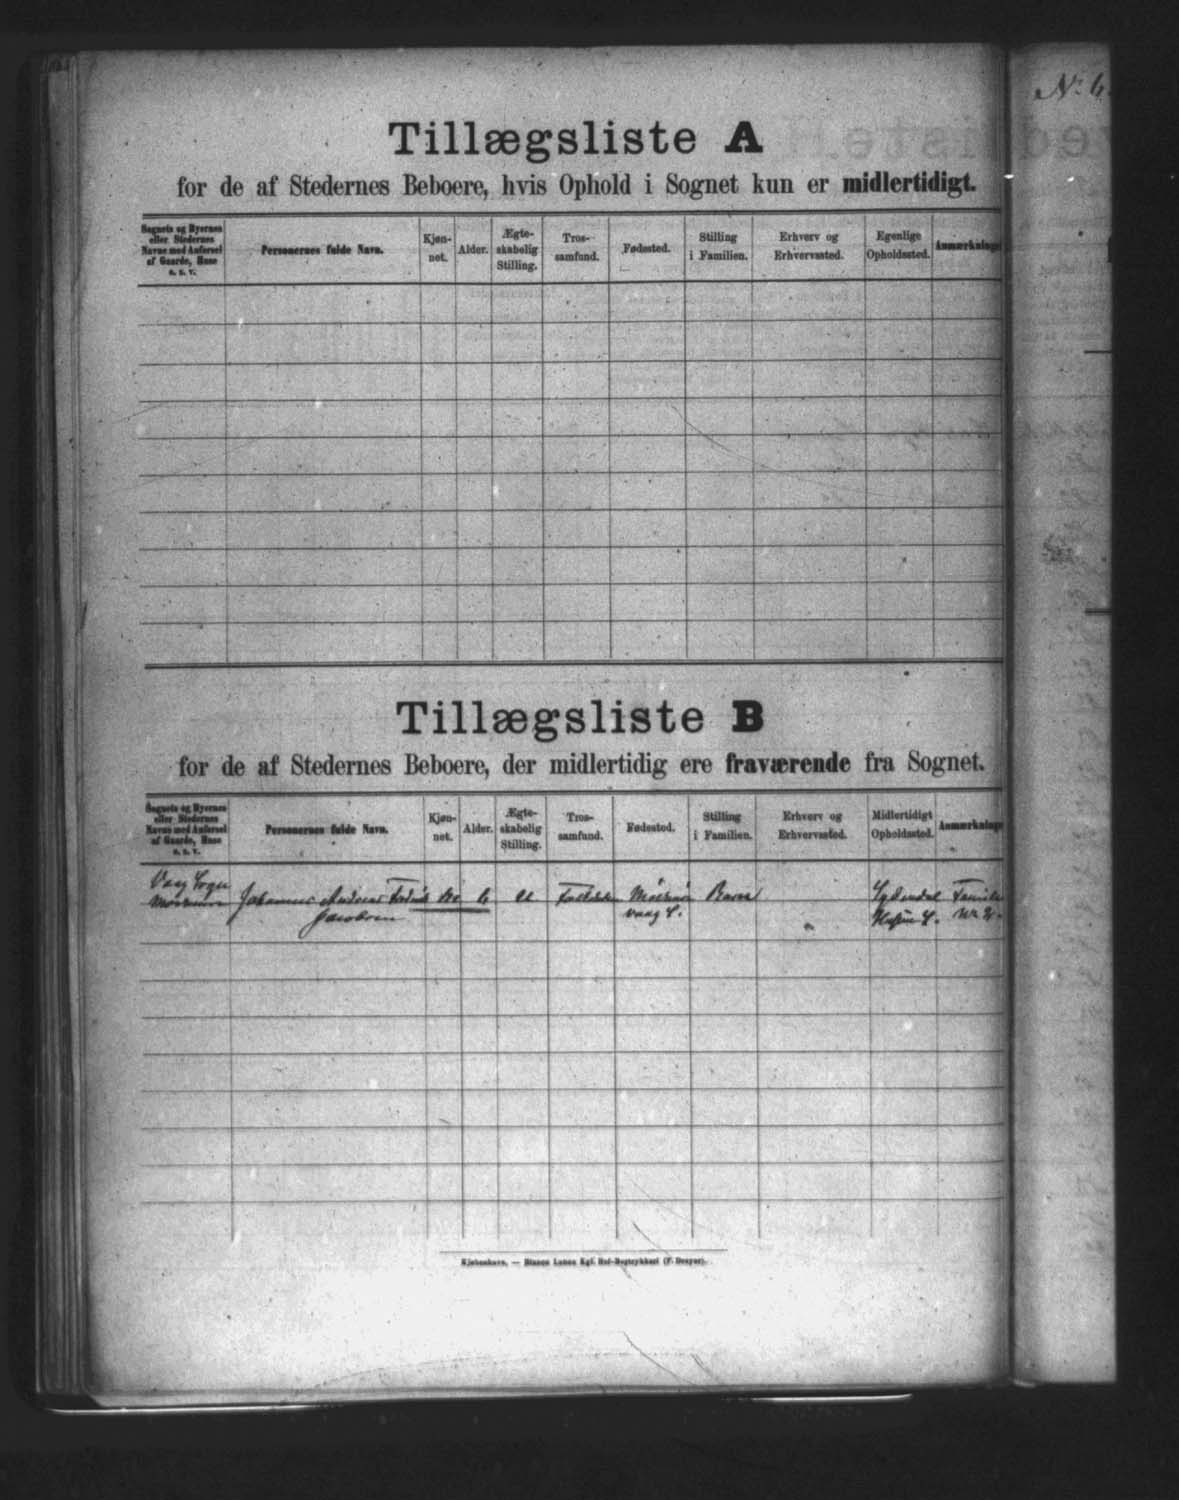 № 6
Tillægsliste A
for de af Stedernes Beboere, hvis Ophold i Sognet kun er midlertidigt.
Sognets og Byernes eller Stedernes Navne med Anførsel af Gaarde, Huse o. s. v.
Personernes fulde Navn.
Kjønnet.
Alder.
Ægteskabelig Stilling.
Trossamfund.
Fødested.
Stilling i Familien.
Erhverv og Erhvervssted.
Egenlige Opholdssted.
Anmærkninge
Tillægsliste B
for de af Stedernes Beboere, der midlertidig ere fraværende fra Sognet.
Sognets og Byernes eller Stedernes Navne med Anførsel af Gaarde, Huse o. s. v.
Personernes fulde Navn.
Kjønnet.
Alder.
Ægteskabelig Stilling.
Trossamfund.
Fødested.
Stilling i Familien.
Erhverv og Erhvervssted.
Midlertidigt Opholdssted.
Anmærkninge
Vaag Sogn
Johannes Andreas
Jacobsen
6
U
Folkekirken
vaag S.
Barn
Familie
Kjøbenhavn. — Bianco Lunos Kgl. Hof-Bogtrykkeri (F. Dreyer).